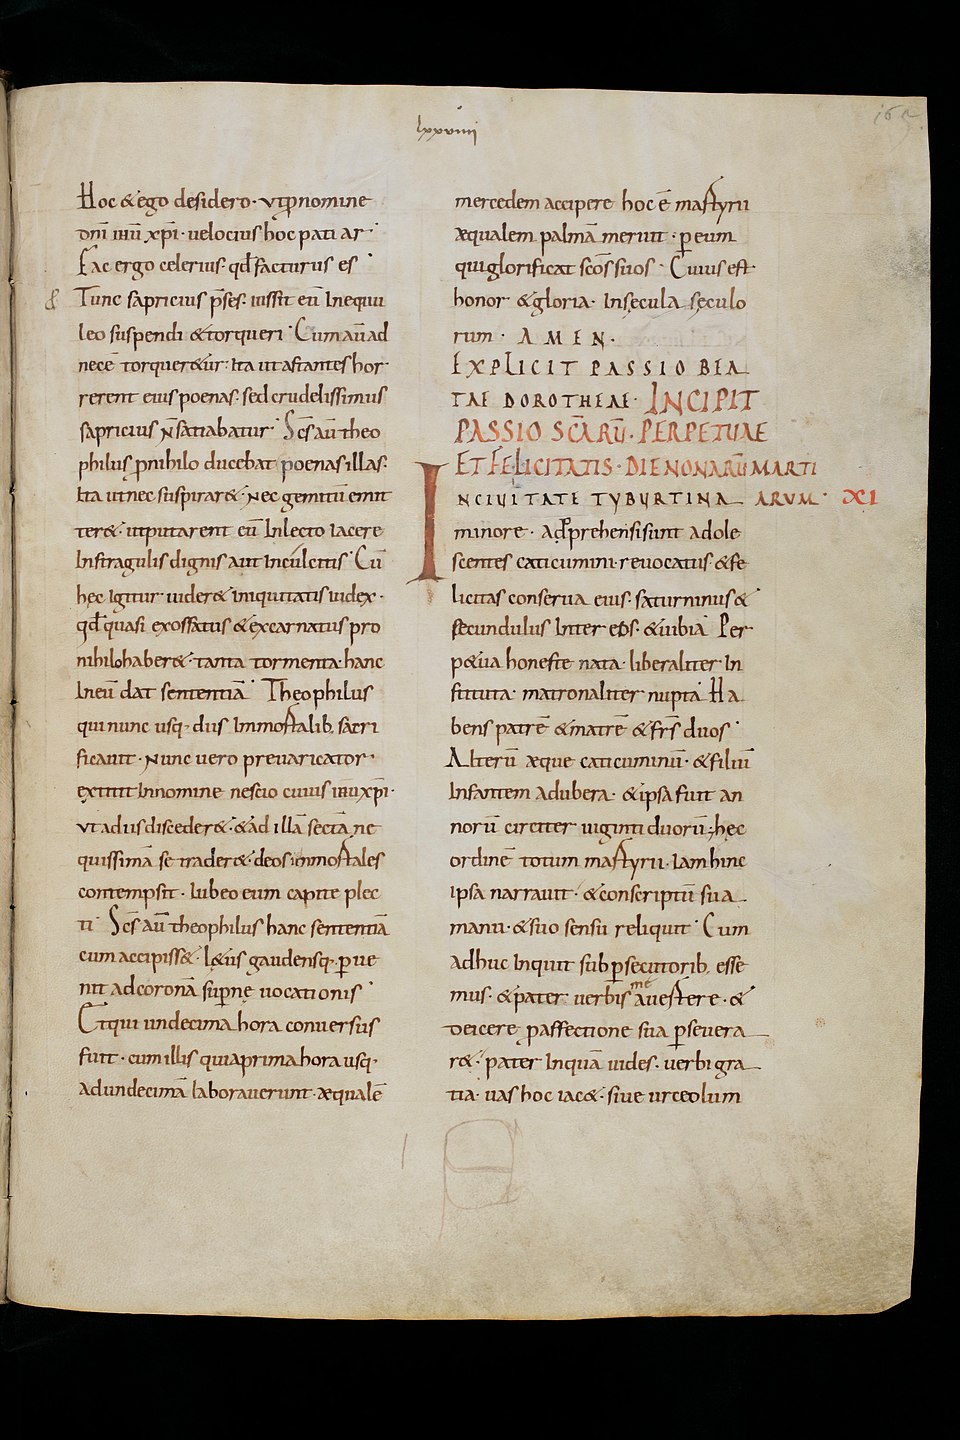 lxxviiii
Hoc & ego desidero· vt p̱ nomine
dn̄i ihū xp̄i· uelocius hoc patiar·
Fac ergo celerius· qđ facturus es·
& Tunc sapricius p̄ses· iussit eū In equu
leo suspendi & torqueri· Cum aū ad
necē torquer&ur· Ita ut astantes hor
rerent eius poenas· sed crudelissimus
sapricius n̄ satiabatur· Scs̄ aū theo
philus p̱ nihilo ducebat poenas illas·
Ita ut nec suspirar&· Nec gemitū emit
ter&· ut putarent eū In lecto iacere
In stragulis dignis aut In culcitis· Cū
hęc Igitur uider& iniquitatis iudex·
qđ quasi exossatus & excarnatus pro
nihilo haber&· tanta tormenta· hanc
In eū dat sententiā· Theophilus
qui nunc usq· diis Immortalib; sacri
ficauit· Nunc uero preuaricator·
extitit In nomine nescio cuius ihū xp̄i·
vt a diis disceder&· & ad illā sectā ne
quissimā se trader&· deos immortales
contempsit· Iubeo eum capite plec
ti· Scs̄ aū theophilus hanc sententiā
cum accipiss&· l&us gaudensq· p̱ue
nit ad coronā sup̱nę uocationis·
Et qui undecima hora conuersus
fuit· cum illis qui a prima hora usq·
ad undecimā laborauerunt· æqualē
mercedem accipere hoc ē martyrii
æqualem palmā meruit· p̱ eum
qui glorificat scōs suos· Cuius est
honor & gloria· In sęcula sęculo
rum· AMEN·
EXPLICIT PASSIO BEA
TAE DOROTHEAE· INCIPIT
PASSIO SCĀRŪ· PERPETUAE
ET FELICITATIS· DIE NONARŪ MARTI
ARUM· XI
IN CIUITATE TYBURTINA
minore· Adprehensi sunt adole
scentes caticumini· reuocatus· & fe
licitas conserua eius· saturninus &
secundulus Inter eos· & uibia Per
p&ua honeste nata· liberaliter In
stituta· matronaliter nupta· Ha
bens patrē & matrē & frs̄ duos·
Alterū æque caticuminū· & filiū
Infantem ad ubera· & ipsa fuit an
norū circiter uiginti duorū; hęc
ordinē totum martyrii· Iam hinc
ipsa narrauit· & conscriptū sua
manu· & suo sensu reliquit· Cum
adhuc Inquit sub p̱secutorib; esse
mus· & pater uerbis me auertere· &
deicere p̱ affectione sua p̱seuera
r&· pater Inquā uides· uerbi gra
tia· uas hoc iac&· siue urceolum